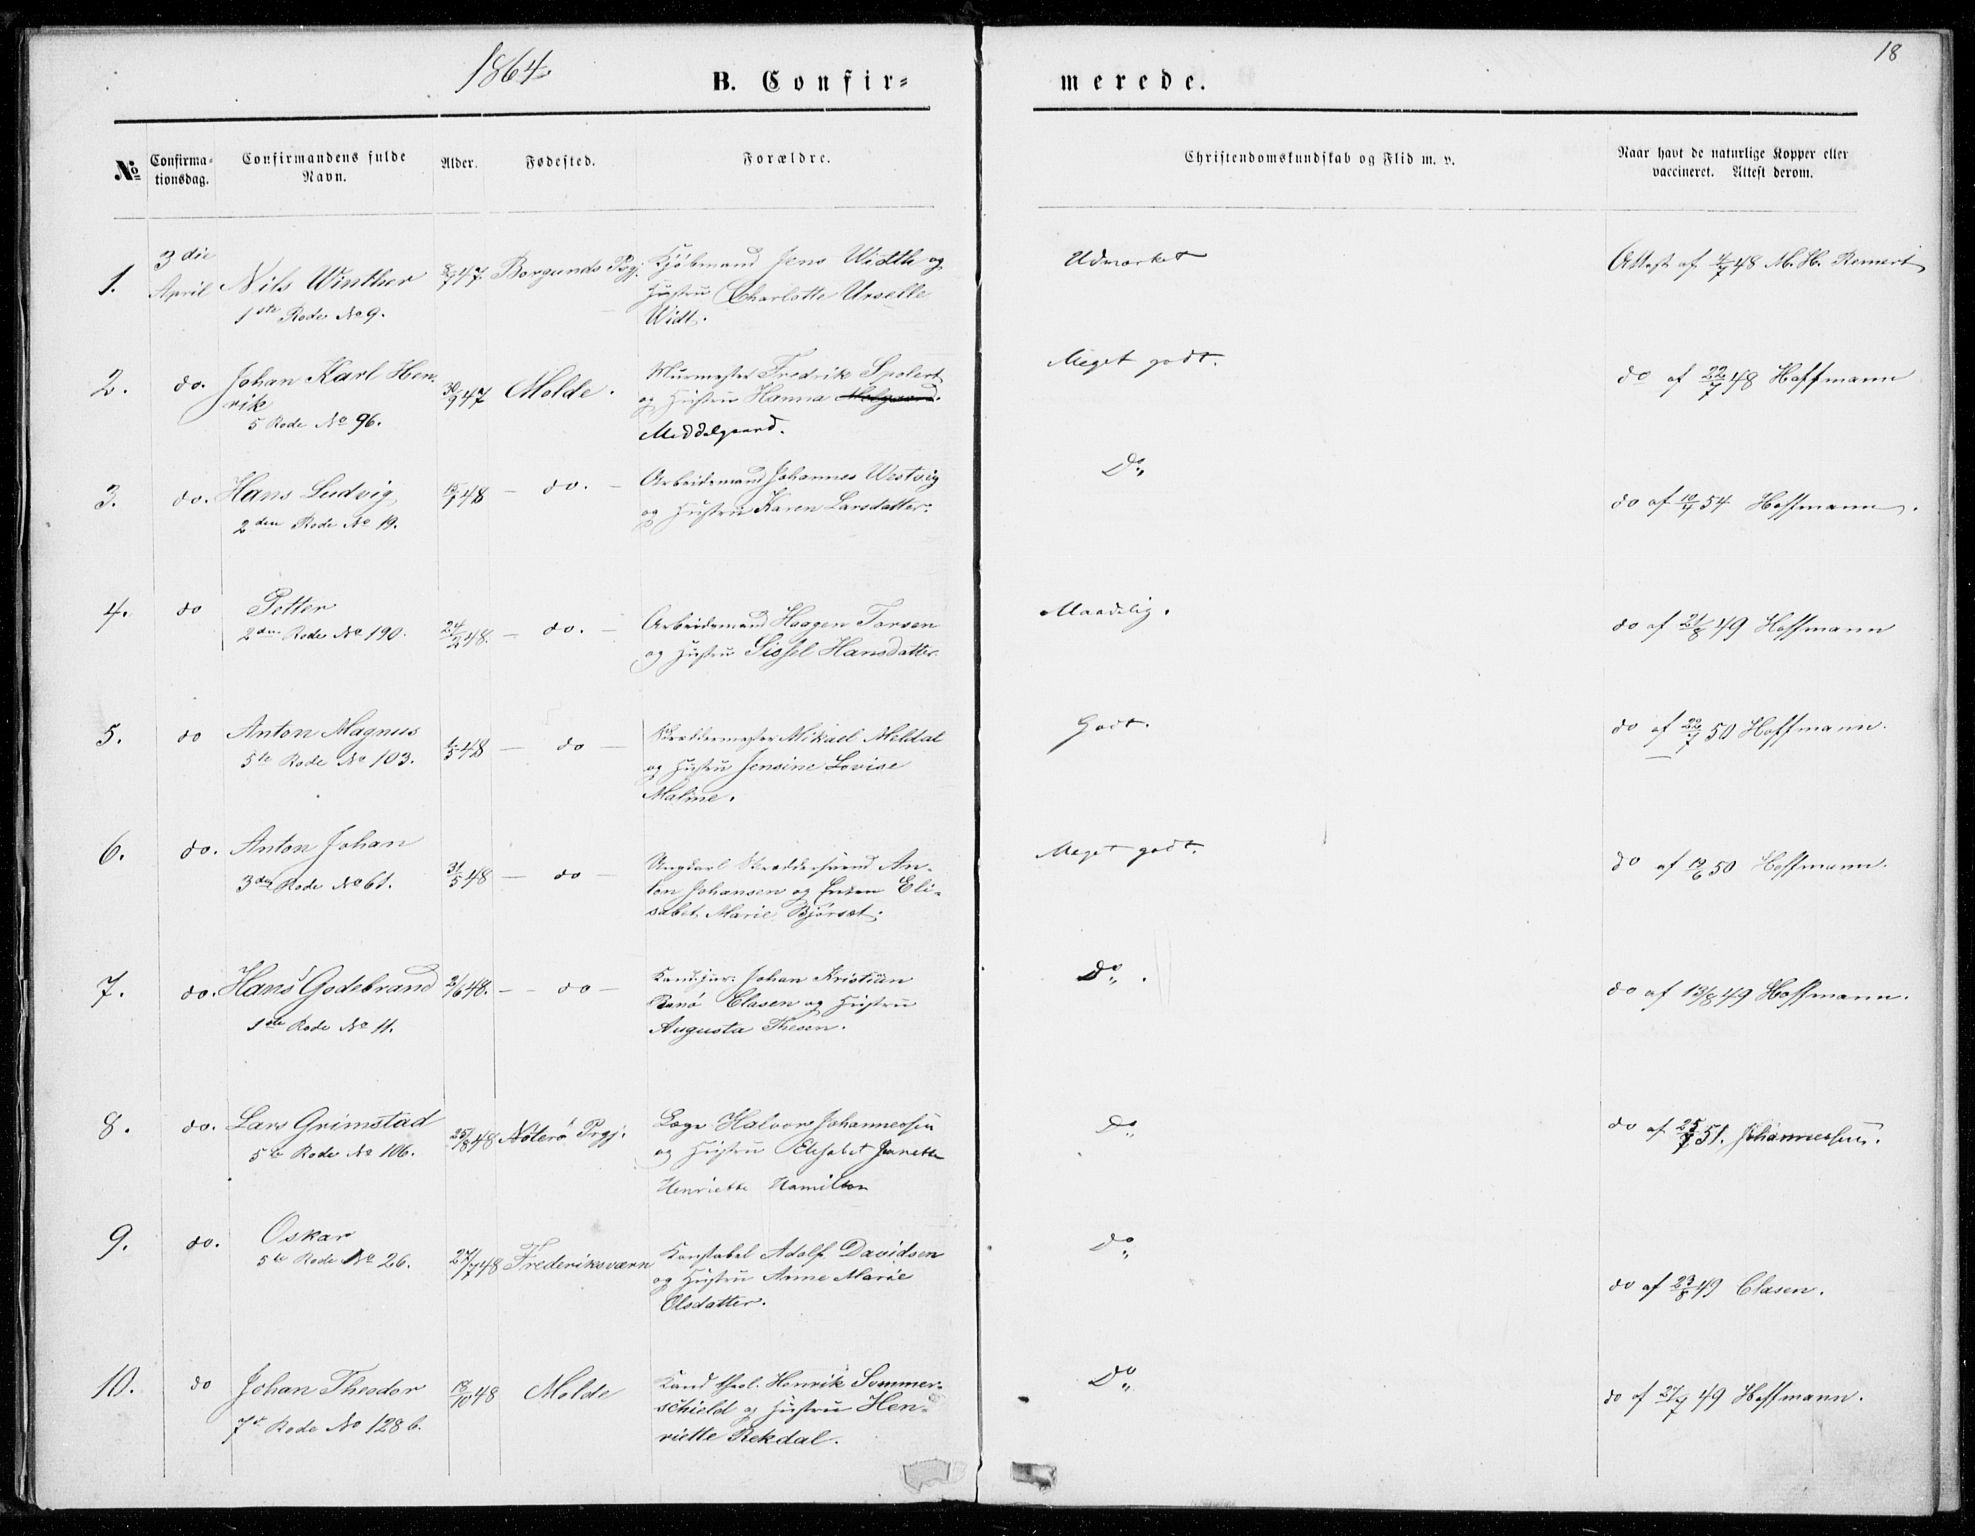 18
1864
B. Confir-
merede.
№ Confirma-tionsdag. Confirmandens fulde Navn. Alder. Fødested. Forældre. Christendomskundskab og Flid m. v. Naar havt de naturlige Kopper eller vaccineret. Attest derom.
1. 3die April
Nils Winther
1ste Rode No 9.
47. Borgunds Prgj.
Kjøbmand Jens Width og
Hustru Charlotte Urselle
Widt.
Udmærket
Attest af 48 M. H. Remert
2. do. Johan Karl Hen-
rik
5 Rode No 96.
30/9 47 Molde.
Murmester Fredrik Spolert
og Hustru Hanna
Meddelgaard.
Meget godt.
do af 22/7 48 Hoffmann
3. do. Hans Ludvig
2den Rode No 19.
15/1 48 — do. —
Arbeidsmand Johannes Westvig
og Hustru Karen Larsdatter.
Do
do af 19/7 54 Hoffmann.
4. do Petter
2den Rode No 190.
24/2 48. — do. —
Arbeidsmand Haagen Torsen
og Hustru Sissel Hansdatter
Maadelig.
do af 21/8 49 Hoffmann
5. do Anton Magnus
5te Rode No 103.
1/5 48 — do —
Skræddermester Mikael Meldal
og Hustru Jensine Lovise
Maline.
Godt.
do af 22/7 50 Hoffmann.
6. do. Anton Johan
3die Rode No 61.
31/5 48 — do —
Ungkarl Skræddersvend An-
ton Johansen og Enken Eli-
sabet Marie Bjørset.
Meget godt.
do af 12/6 50 Hoffmann.
7. do. Hans Godebrand
1ste Rode No 11.
2/6 48. — do —
Kand. jur. Johan Kristian
Ranø Clasen og Hustru
Augusta Thesen.
Do.
do af 13/8 49 Hoffmann.
8. do. Lars Grimstad
5te Rode No 106.
25/8 48 Nøterø Prgj.
Læge Halvor Johannessen
og Hustru Elisabet Janette
Henriette Hamilton
Do
do af 25/7 51. Johannessen.
9. do. Oskar
5te Rode No 26.
27/7 48 Frederiksværn
Konstabel Adolf Davidsen
og Hustru Anne Marie
Olsdatter.
Do
do af 23/8 49 Clasen.
10. do Johan Theodor
7de Rode No 128 b.
13/10 48 Molde
Kand theol. Henrik Sommer-
schield og Hustru Hen-
riette Rekdal.
Do
do af 27/7 49 Hoffmann.